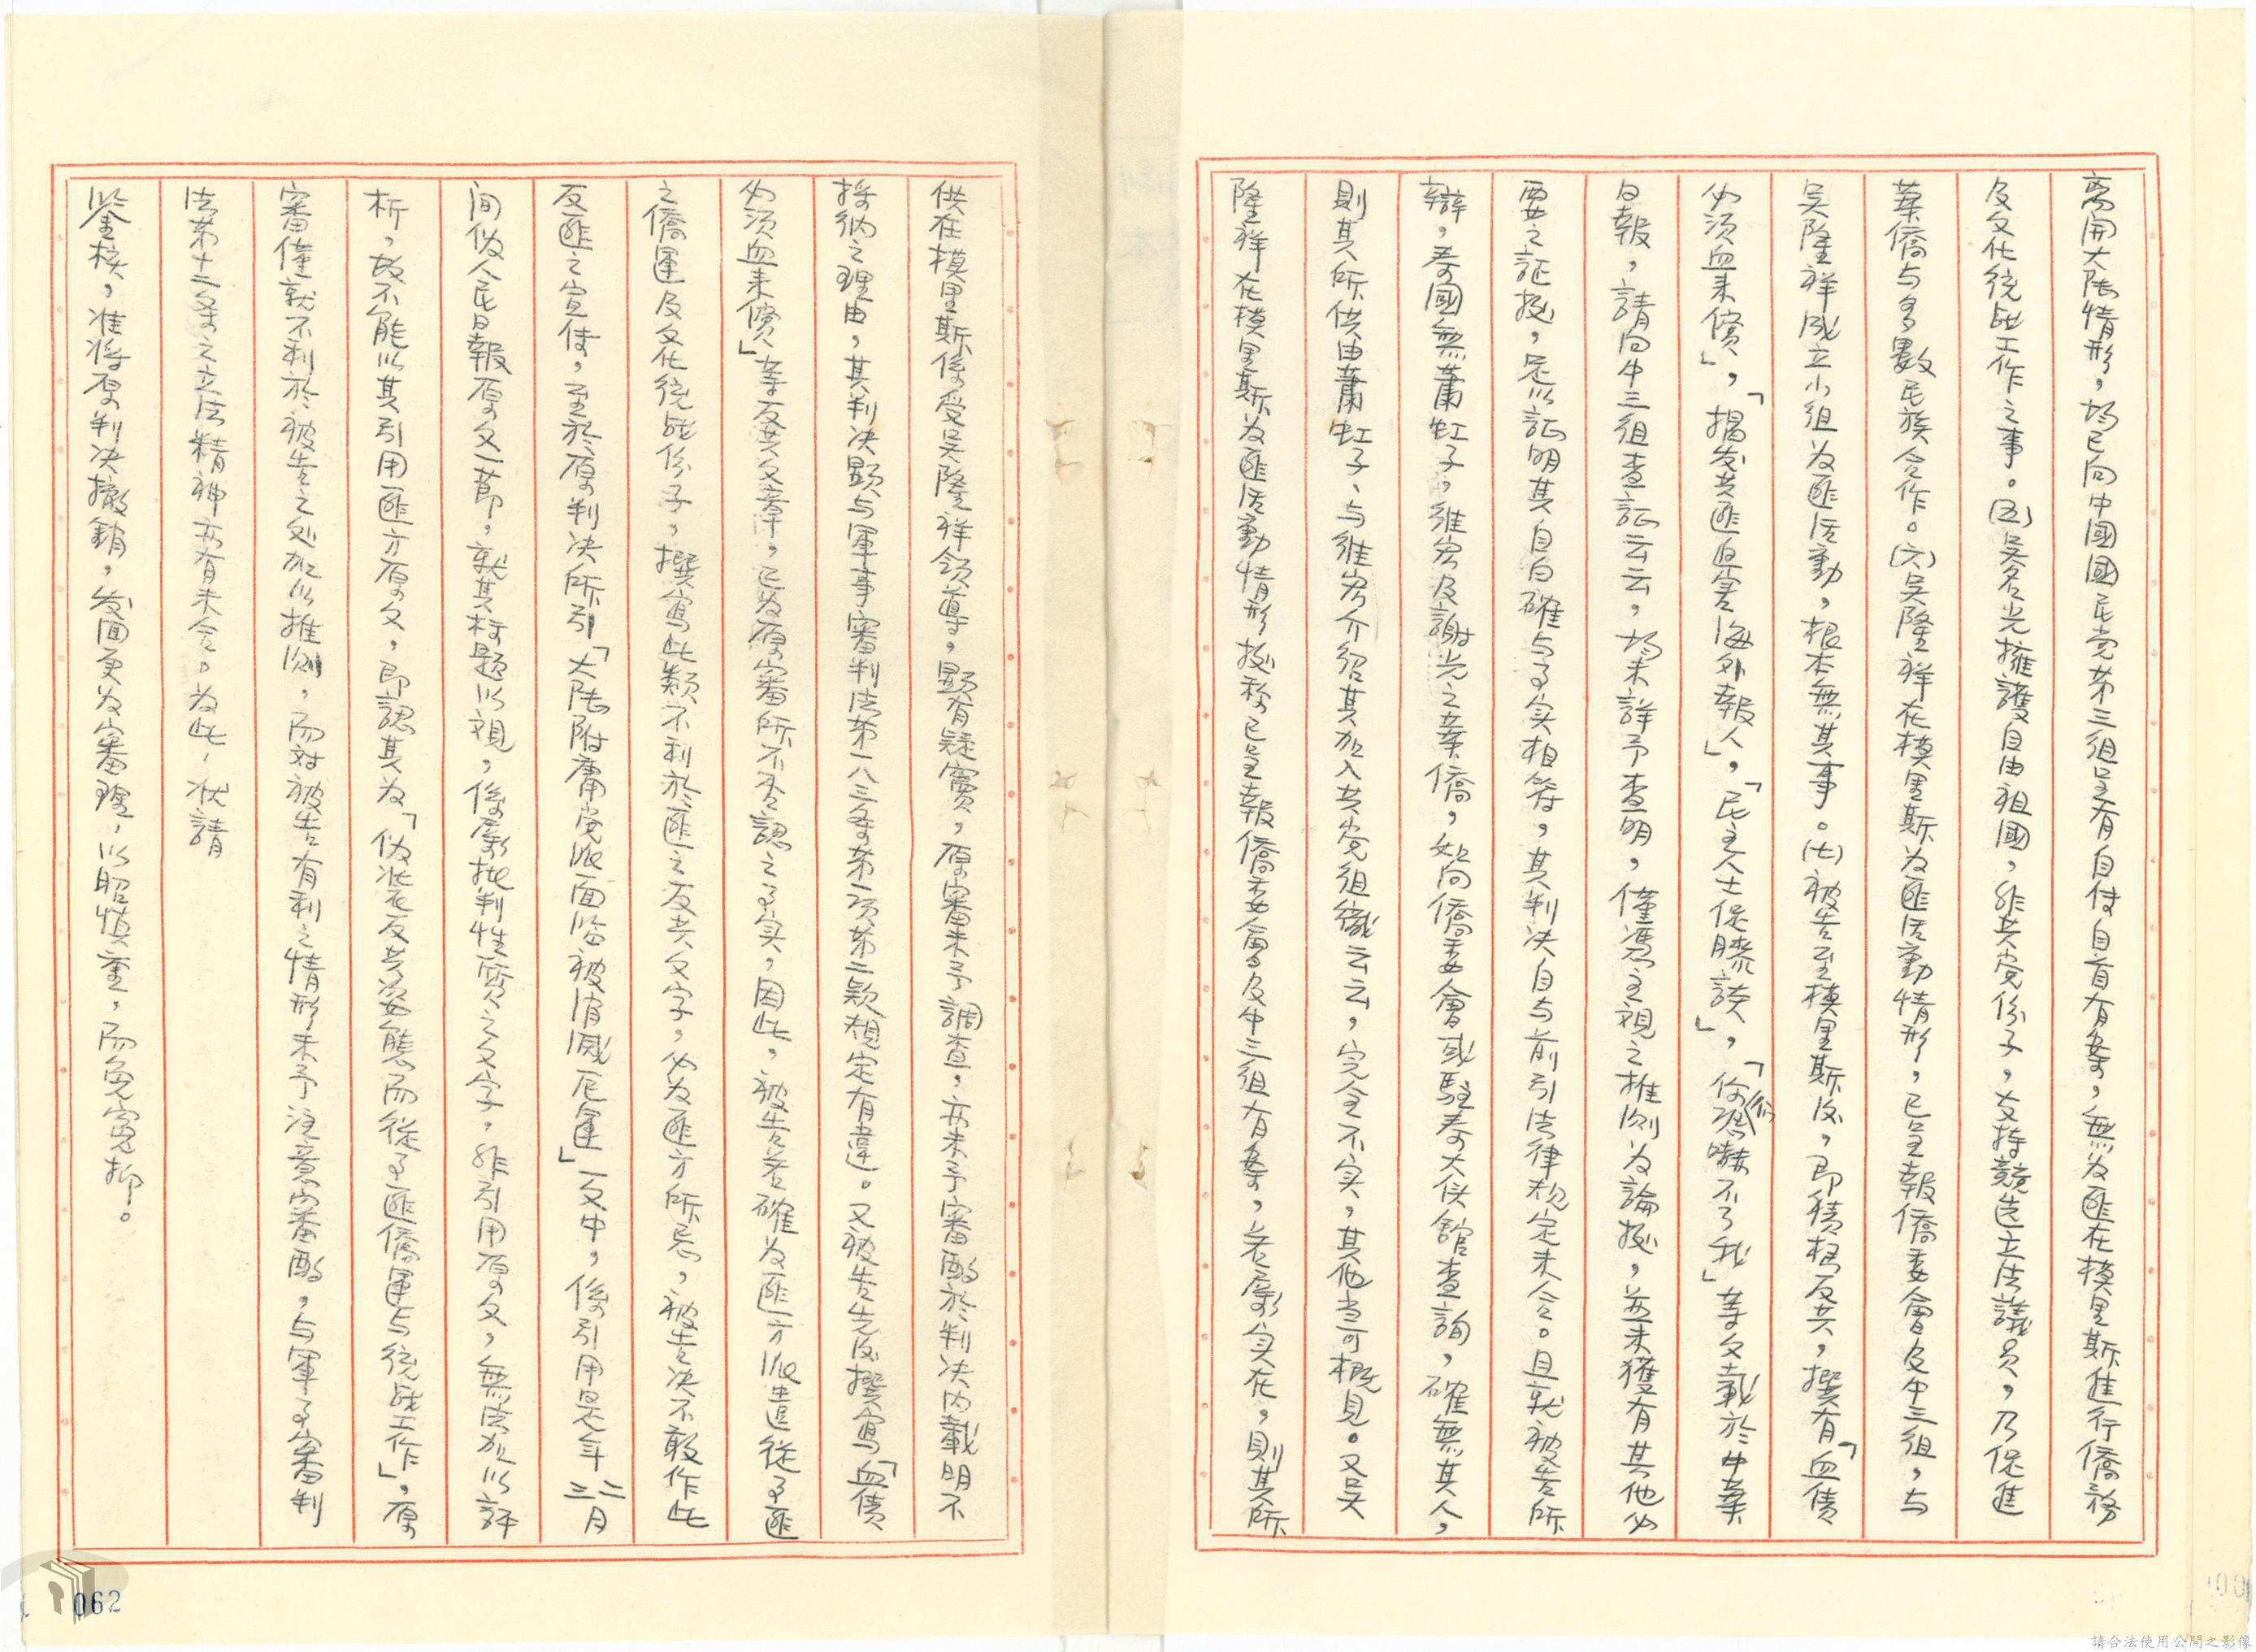 离開大陆情形，均已向中國國民党第三組呈有自传自首有案，無为匪在模里斯進行僑務
及文化统战工作之事。(五)吴名光擁護自由祖國，非共党份子，支持競选立法議員，乃促進
華僑与多數民族合作。(六)吴隆祥在模里斯为匪活動情形，已呈報僑委會及中三組，与
吴隆祥成立小组为匪活動，根本無其事。(七)被告至模里斯後，即積极反共，撰有「血債
必须血来償」，「揭发共匪迫害海外報人」，「民主人士促膝談」，「你们恐嚇不了我」等文載於中華
日報，請向中三組查証云云，均未詳予查明，僅憑主观之推测为論据，並未獲有其他必
要之証据，足以証明其自白確与事实相符，其判决自与前引法律规定未合。且就被告所
辯，泰國無蕭虹子，維宏及謝光之華僑，如向僑委會或駐泰大使館查詢，確無其人，
則其所供由蕭虹子、与維宏介绍其加入共党组織云云，完全不实，其他当可概見。又吴
隆祥在模里斯为匪活動情形据称已呈報僑委會及中三組有案，若屬实在，則其所
供在模里斯係受吴隆祥領導，顯有疑竇，原審未予調查，亦未予審酌於判决内載明不
採納之理由，其判决顯与軍事審判法第一八三条第一项第二款规定有違。又被告先後撰寫「血債
必须血来償」等反共文章，已为原審所不否認之事实，因此，被告若確为匪方派遣從事匪
之僑運及文化统战份子，撰寫此類不利於匪之反共文字，必为匪方所忌，被告决不敢作此
反匪之宣传，至於原判决所引「大陆附庸党派面临被消滅厄運」一文中，係引用是年二三月
间伪人民日報原文一節，就其标题以观，係屬批判性質之文字，非引用原文，無法加以評
析，故不能以其引用匪方原文，即認其为「伪装反共姿態而從事匪僑運与统战工作」，原
審僅就不利於被告之处加以推测，而对被告有利之情形未予注意审酌，与軍事審判
法第十二条之立法精神亦有未合。为此，状請
鉴核，准将原判决撤銷，发回更为審理，以昭慎重，而免冤抑。
062
請合法使用公開之影像